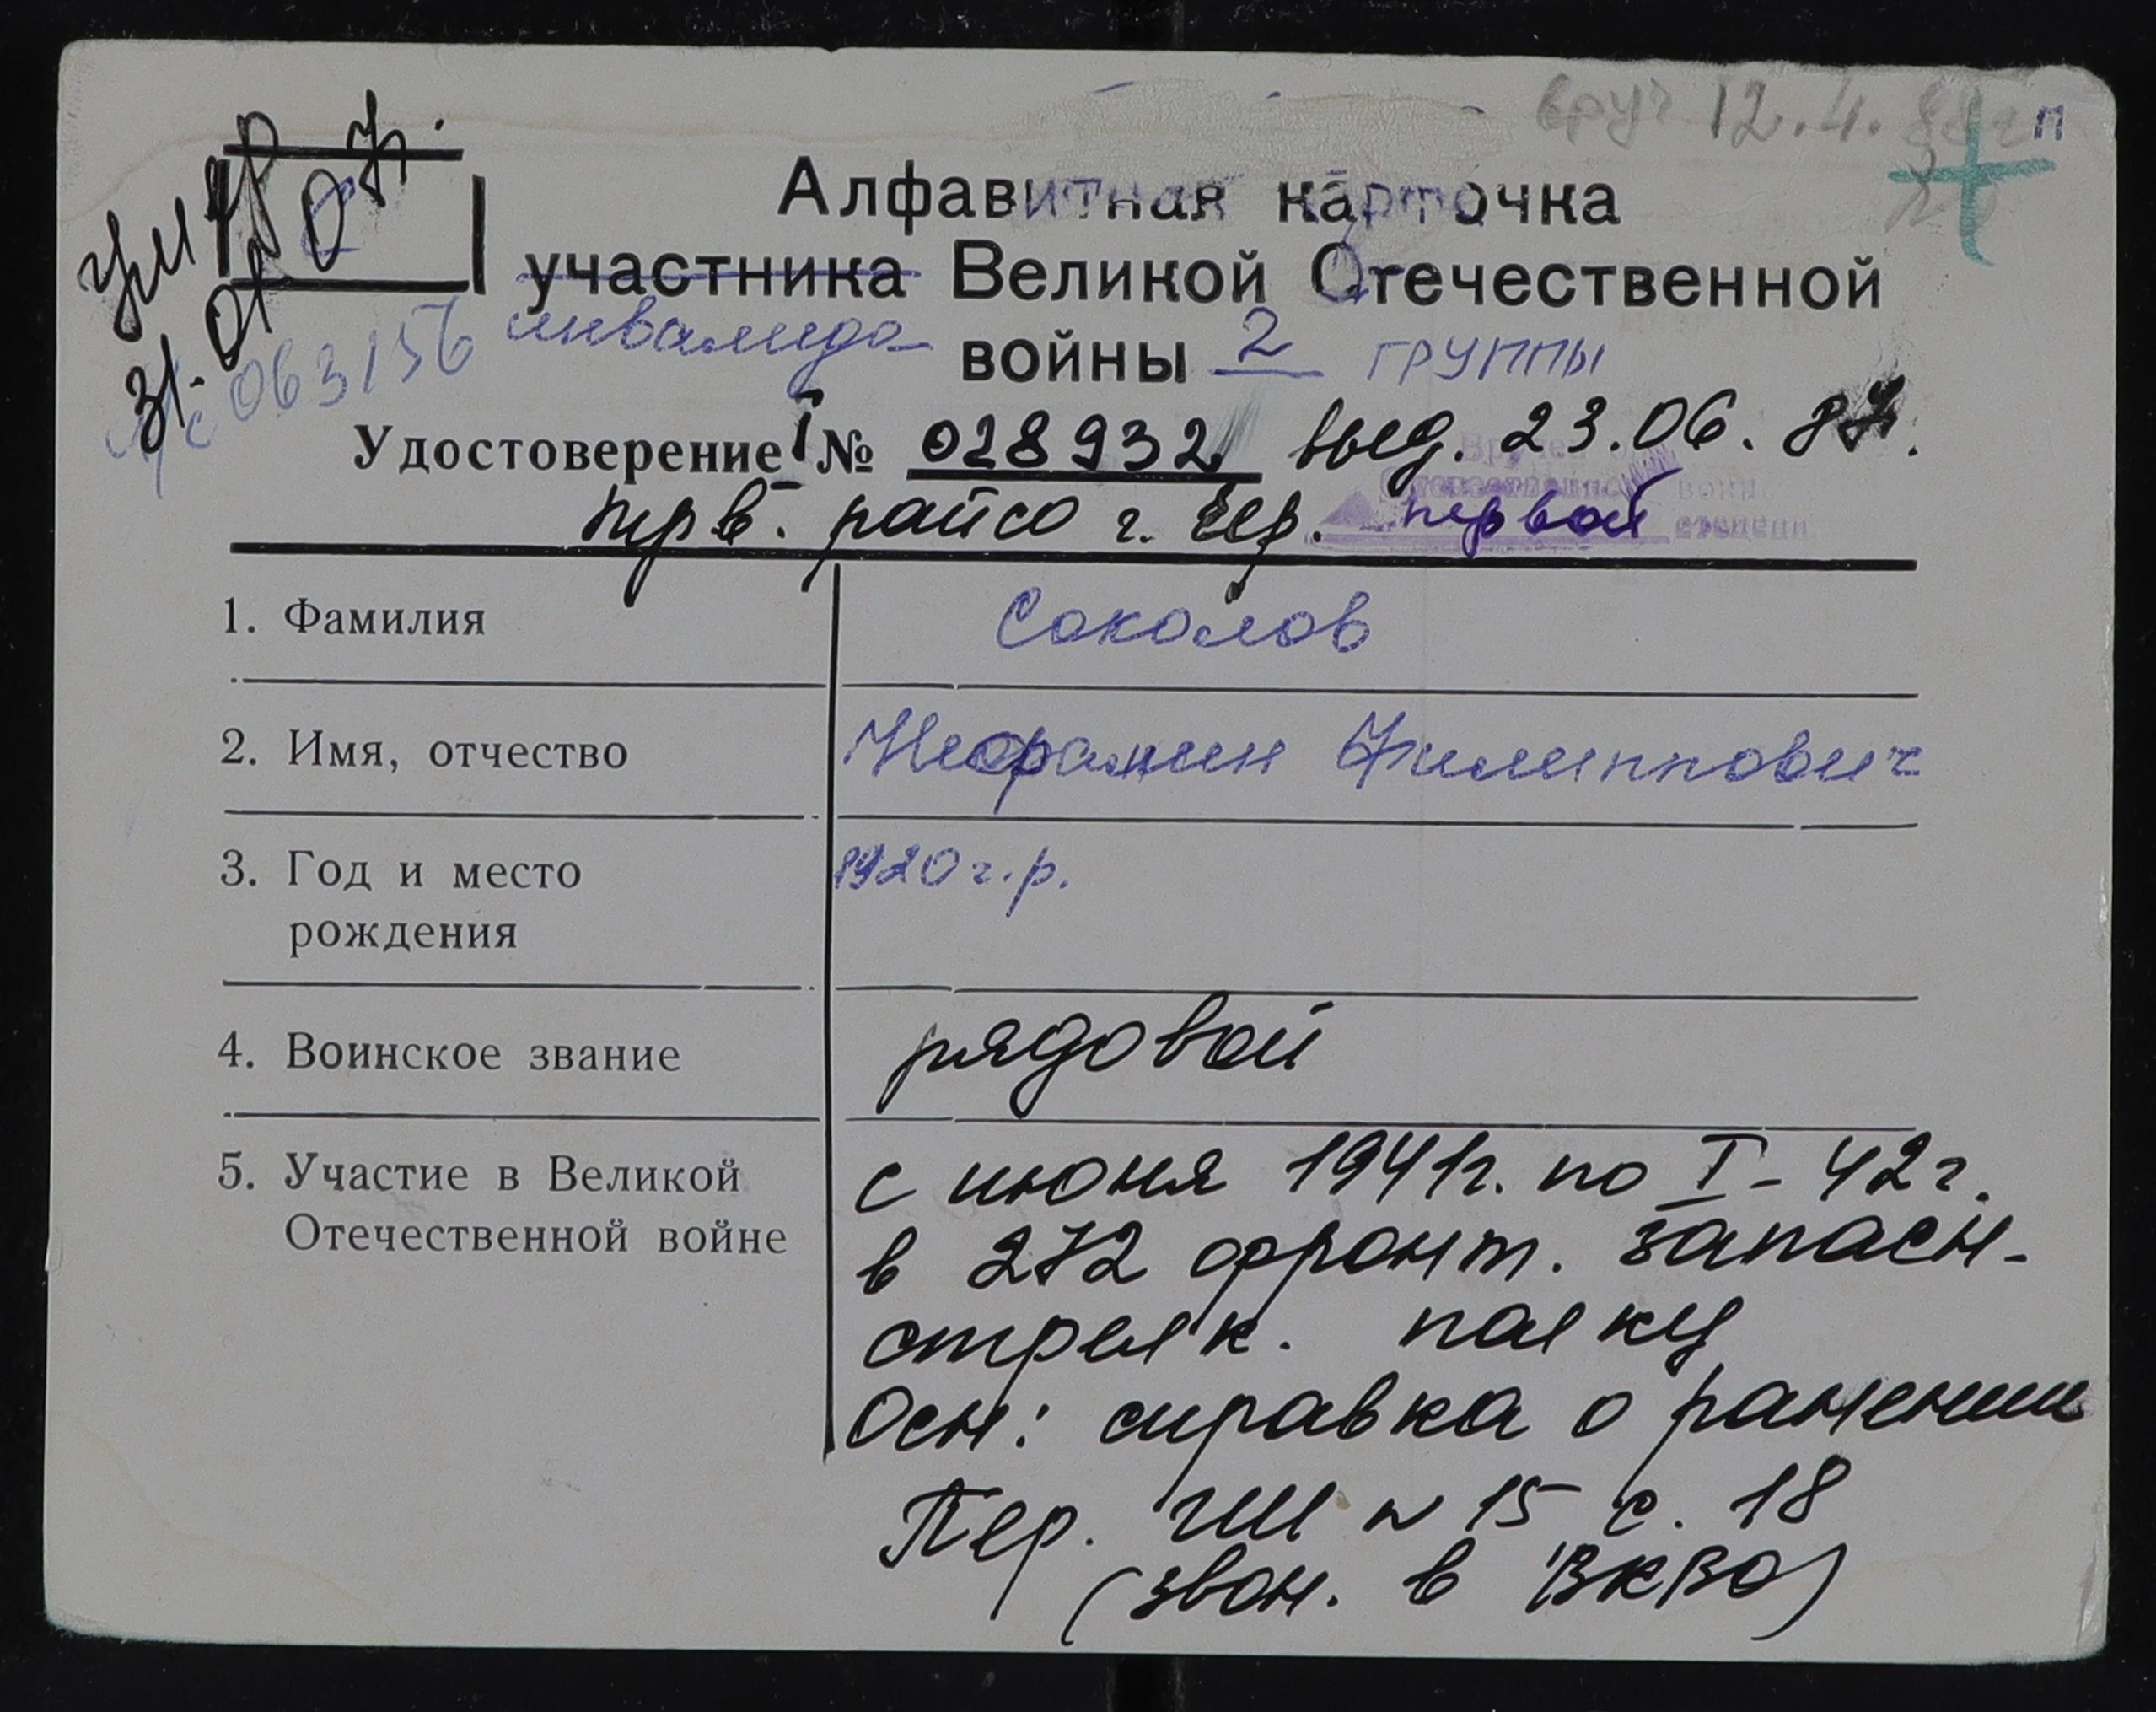 вруч 12.4.
П
умер
31.01.07.
Алфавитная карточка
участника Великой Отечественной
инвалида войны 2 группы
063156
Удостоверение I № 028932 выд. 23.06.87.
райсо г. первой степени
1. Фамилия Соколов
2. Имя, отчество Филиппович
3. Год и место рождения 1920 г.р.
4. Воинское звание рядовой
5. Участие в Великой с июня 1941г. по I-42г.
Отечественной войне в 272 фронт. запасн.
стрелк. полку
Осн: справка о ранении
Пер. ГШ № 15 с. 18
(звон. в ВКВО)